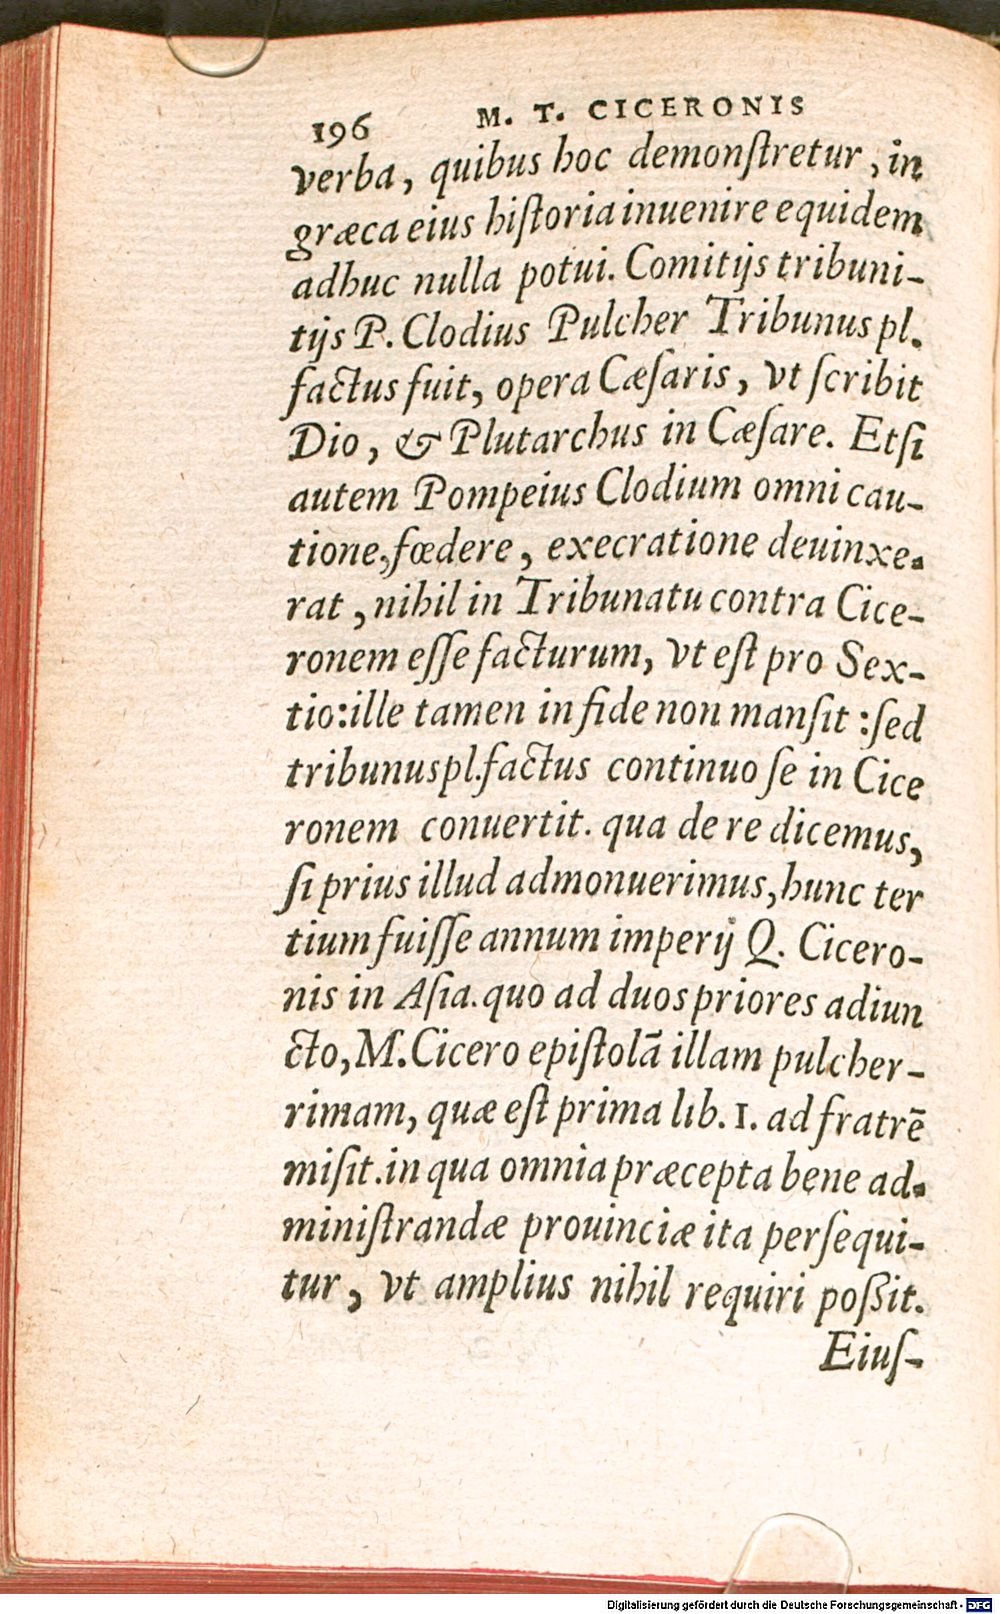 196 M. T. CICERONIS
verba, quibus hoc demonſtretur, in
græca eius hiſtoria inuenire equidem
adhuc nulla potui. Comitijs tribuni-
tijs P. Clodius Pulcher Tribunus pl.
factus fuit, opera Cæſaris, vt ſcribit
Dio, & Plutarchus in Cæſare. Etſi
autem Pompeius Clodium omni cau-
tione, fœdere, execratione deuinxe-
rat, nihil in Tribunatu contra Cice-
ronem eſſe facturum, vt eſt pro Sex-
tio: ille tamen in fide non manſit: ſed
tribunus pl. factus continuo ſe in Cice
ronem conuertit. qua de re dicemus,
ſi prius illud admonuerimus, hunc ter
tium fuiſſe annum imperij Q. Cicero-
nis in Aſia. quo ad duos priores adiun
cto, M. Cicero epiſtolā illam pulcher-
rimam, quæ eſt prima lib. 1. ad fratrē
miſit. in qua omnia præcepta bene ad-
miniſtrandæ prouinciæ ita perſequi-
tur, vt amplius nihil requiri poßit.
Eiuſ-
Digitalisierung gefördert durch die Deutsche Forschungsgemeinschaft - DFG